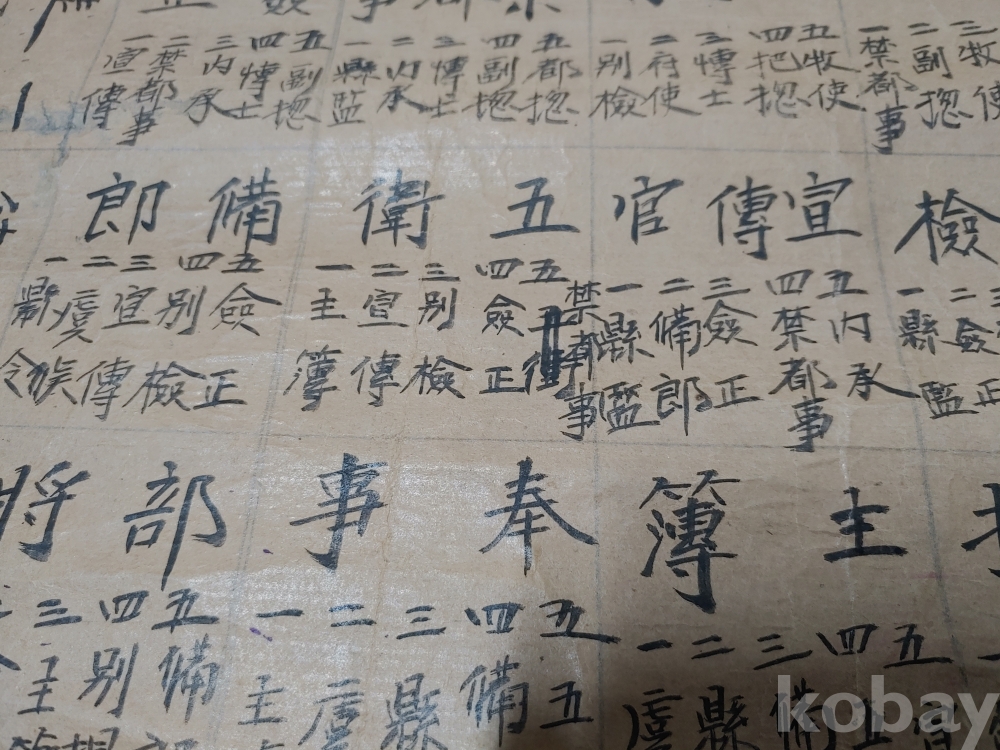 三牧使
二副摠
一禁都事
五牧使
四把摠
三博士
二府使
一別檢
五都摠
四副摠
三博士
二內承
一縣監
五副摠
四博士
三內承
二禁都事
一宣傳
檢
二僉正
一縣監
宣傳官
五內承
四禁都事
三僉正
二備郎
一縣監
五衛
五禁都事
四僉正
三別檢
二宣傳
一主簿
備郎
五僉正
四別檢
三宣傳
二虞候
一縣令
主簿
五宣
四主
三備
二縣
一虞
奉事
五五
四備
三縣
二虞
一主
部將
五備
四別
三主
kobay